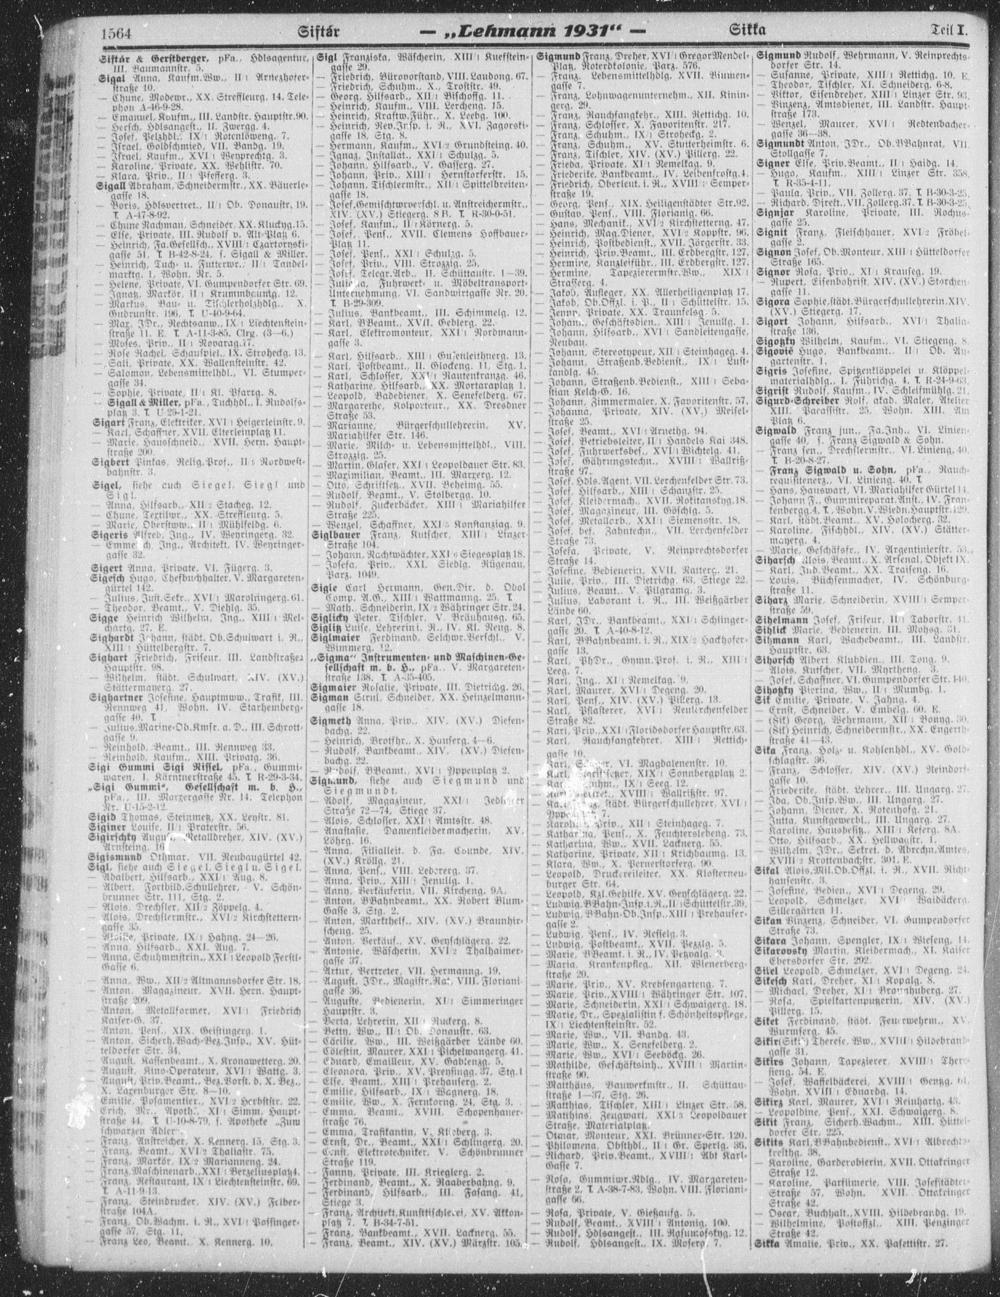 1564 Siftár — „Lehmann 1931“ — Sitka Teil I.
Siftár & Gerstberger, pFa., Hdlsagentur,
III. Baumannstr. 5.
Sigal Anna, Kaufm.Ww., II: Arnezhofer-
straße 10.
— Chune, Modewr., XX. Streffleurg. 14. Tele-
phon A-46-9-28.
— Emanuel, Kaufm., III. Landstr. Hauptstr. 90.
— Hersch, Hdlsangest., II. Zwerg. 4.
— Josef, Pelzhdl., IX: Rotenlöweng. 7.
— Israel, Goldschmied, VII. Bandg. 19.
— Israel, Kaufm., XVI: Weyprechtg. 3.
— Karoline, Private, XX. Webstr. 70.
— Klara, Priv., II: Pfefferg. 3.
Sigall Abraham, Schneidermstr., XX. Bäuerle-
gasse 18.
— Boris, Hdlsvertret., II: Ob. Donaustr. 19.
T. A-47-8-92.
— Chune Nachman, Schneider, XX. Kluckyg. 15.
— Else, Private, III. Rudolf v. Alt-Platz 6.
— Heinrich, Fa.Gesellsch., XVIII: Czartoryski-
gasse 51. T. B-42-8-24, s. Sigall & Miller.
— Heinrich, Tuch- u. Futterwr., II: Tandel-
markig. 1, Wohn. Nr. 5.
— Helene, Private, VI. Gumpendorfer Str. 69.
— Ignatz, Markör, II: Krummbaumg. 12.
— Markus, Bau- u. Tischlerholzhdlg., X.
Gudrunstr. 196. T. U-40-9-64.
— Max, JDr., Rechtsanw., IX: Liechtenstein-
straße 11, E. T. A-11-3-85. Chrg. (3—6.)
— Moses, Priv., II: Novarag. 77.
— Rose Rachel, Schauspiel., IX. Stroheckg. 13.
— Sali, Private, XX. Wallensteinstr. 42.
— Salomon, Lebensmittelhdl., VI. Stumper-
gasse 34.
— Sophie, Private, II: Kl. Pfarrg. 8.
— Sigall & Miller, pFa., Tuchhdl., I. Rudolfs-
platz 3. T. U 25-1-21.
Sigart Franz, Elektriker, XVI: Heigerleinstr. 9.
— Karl, Schaffner, XVII. Elterleinplatz 11.
— Marie, Hausschneid., XVII. Hern. Haupt-
straße 200.
Sigbert Pinkas, Relig.Prof., II: Nordwest-
bahnstr. 3.
Sigel, siehe auch Siegel, Siegl und
Sigl.
— Anna, Hilfsarb., XII: Stachg. 12.
— Chune, Textilwr., XX. Streffleurg. 5.
— Marie, Oberstww., II: Mühlfeldg. 6.
Sigeris Alfred, Ing., IV. Weyringerg. 32.
— Emmerich, Ing., Architekt, IV. Weyringer-
gasse 32.
Sigert Anna, Private, VI. Fügerg. 3.
Sigesch Hugo, Chefbuchhalter, V. Margareten-
gürtel 142.
— Julius, Just.Sekr., XVI: Maroltingerg. 61.
— Theodor, Beamt., V. Diehlg. 35.
Sigge Heinrich Wilhelm, Ing., XIII: Mel-
chartg. 27, E.
Sighardt Johann, städt. Ob.Schulwart i. R.,
XIII: Hüttelbergstr. 7.
Sighart Friedrich, Friseur, III. Landstraßer
Hauptstr. 98.
— Wilhelm, städt. Schulwart, XIV. (XV.)
Stättermayerg. 27.
Sighartner Josefine, Hauptmww., Trafik, III.
Rennweg 41. Wohn. IV. Starhemberg-
gasse 40. T.
— Julius, Marine-Ob.Kmsr. a. D., III. Schrott-
gasse 9.
— Reinhold, Beamt., III. Rennweg 33.
— Reinhold, Kaufm., XIII. Privatg. 36.
Sigi Gummi Sigi Rissel, pFa., Gummi-
waren, I. Kärntnerstraße 45. T. R-29-3-34.
„Sigi Gummi“, Gesellschaft m. b. H.,
pFa., III. Marxergasse Nr. 14. Telephon
Nr. U-15-2-12.
Sigid Thomas, Steinmetz, XX. Leystr. 81.
Siginer Louise, II: Praterstr. 56.
Sigirschky August, Metalldreher, XIV. (XV.)
Arnsteing. 16.
Sigismund Othmar, VII. Neubaugürtel 42.
Sigl, siehe auch Siegel, Siegl u. Sigel.
— Adalbert, Hilfsarb., XXI: Aug. 8.
— Albert, Fortbild.Schullehrer, V. Schön-
brunner Str. 111, Stg. 2.
— Alois, Drechsler, XII: Zöppelg. 4.
— Alois, Drechslermstr., XVI: Kirchstettern-
gasse 35.
— Aloisia, Private, IX: Hahng. 24—26.
— Anna, Hilfsarb., XXI. Aug. 7.
— Anna, Schuhmstrin., XXI: Leopold Ferstl-
Gasse 6.
— Anna, Ww., XII: Altmannsdorfer Str. 18.
— Anton, Magazineur, XVII. Hern. Haupt-
straße 209.
— Anton, Metallformer, XVI: Friedrich
Kaiser-G. 37.
— Anton, Pens., XIX. Geistingerg. 1.
— Anton, Sicherh.Wach-Bez.Insp., XV. Hüt-
teldorfer Str. 34.
— August, Kaffeebeamt., X. Kronawetterg. 20.
— August, Kino-Operateur, XVI: Wattg. 3.
— August, Priv.Beamt., Bez.Vorst. d. X. Bez.,
X. Laxenburger Str. 8—10.
— Emilie, Posamentier., XVI: Herbststr. 22.
— Erich, Mr., Apoth., XI: Simm. Haupt-
straße 44, T. U-10-8-79, s. Apotheke „Zum
schwarzen Adler“.
— Franz, Anstreicher, X. Kennerg. 15, Stg. 3.
— Franz, Beamt., XVI: Thaliastr. 75.
— Franz, Markör, IX: Marianneng. 24.
— Franz, Maschinenarb., XXI: Berzeliusplatz 4.
— Franz, Restaurant, IX: Liechtensteinstr. 69.
T. A-11-9-13.
— Franz, Steindrucker, XIV. (XV.) Felber-
straße 104A.
— Franz, Ob.Wachm. i. R., XVI: Possinger-
gasse 57, Stg. 11.
— Franz Leo, Beamt., X. Kennerg. 10.
Sigl Franziska, Wäscherin, XIII: Kuefstein-
gasse 29.
— Friedrich, Bürovorstand, VIII. Laudong. 67.
— Friedrich, Schuhm., X. Troststr. 49.
— Georg, Hilfsarb., XII: Bischoffg. 11.
— Heinrich, Kaufm., VIII. Lercheng. 15.
— Heinrich, Kraftw.Führ., X. Leebg. 100.
— Heinrich, Rev.Insp. i. R., XVI. Zagorski-
gasse 18, Stg. 8.
— Hermann, Kaufm., XVI: Grundsteing. 40.
— Ignaz, Installat., XXI: Schulzg. 5.
— Johann, Hilfsarb., V. Gasserg. 27.
— Johann, Private, XIII: Hernstorferstr. 15.
— Johann, Tischlermstr., XII: Spittelbreiten-
gasse 18.
— Josef, Gemischtwverschl. u. Anstreichermstr.,
XIV. (XV.) Stiegerg. 8 B. T. R-30-0-51.
— Josef, Kaufm., II: Körnerg. 5.
— Josef, Pens., XVII. Clemens Hoffbauer-
Platz 11.
— Josef, Pens., XXI: Schulzg. 5.
— Josef, Priv., VIII. Strozzig. 25.
— Josef, Telegr.Arb., II. Schüttaustr. 1—39.
— Julia, Fuhrwerk- u. Möbeltransport-
Unternehmung, VI. Sandwirtgasse Nr. 20.
T. B-29-309.
— Julius, Bankbeamt., III. Schimmelg. 12.
— Karl, BBeamt., XVII. Geblerg. 22.
— Karl, Elektromonteur, XXI: Nordmann-
gasse 3.
— Karl, Hilfsarb., XIII: Gusenleithnerg. 13.
— Karl, Postbeamt., II. Glockeng. 11, Stg. 1.
— Karl, Schlosser, XXI: Rautenkranzg. 46.
— Katharine, Hilfsarb., XX. Mortaraplatz 1.
— Leopold, Badediener, X. Senefelderg. 67.
— Margarethe, Kolporteur., XX. Dresdner
Straße 53.
— Marianne, Bürgerschullehrerin, XV.
Mariahilfer Str. 146.
— Marie, Milch- u. Lebensmittelhdl., VIII.
Strozzig. 25.
— Martin, Glaser, XXI: Leopoldauer Str. 83.
— Maximilian, Beamt., III. Marxerg. 12.
— Otto, Schriftsetz., XVII. Beheimg. 55.
— Rudolf, Beamt., V. Stolbergg. 10.
— Rudolf, Zuckerbäcker, XIII: Mariahilfer
Straße 225.
— Wenzel, Schaffner, XXI: Konstanziag. 9.
Siglbauer Franz, Kutscher, XIII: Linzer-
Straße 104.
— Johann, Nachtwächter, XXI: Siegesplatz 18.
— Josefa, Priv., XXI. Siedlg. Rügenau,
Parz. 1049.
Sigle Carl Hermann, Gen.Dir. d. Obol
Comp. A.G., XIII: Wattmanng. 25. T.
— Math., Schneiderin, IX: Währinger Str. 24.
Siglicky Peter, Tischler, V. Bräuhausg. 65.
Siglitz Luise, Lehrerin i. R., IV. Kl. Neug. 8.
Siglmaier Ferdinand, Selchwr.Verschl., V.
Wimmerg. 12.
„Sigma“ Instrumenten- und Maschinen-Ge-
sellschaft m. b. H., pFa., V. Margareten-
straße 138. T. A-35-405.
Sigmaier Rosalie, Private, III. Dietrichg. 26.
Sigman Srul, Schneider, XX. Heinzelmann-
gasse 18.
Sigmeth Anna, Priv., XIV. (XV.) Diefen-
bachg. 22.
— Heinrich, Brotfhr., X. Hauserg. 4—6.
— Rudolf, Bankbeamt., XIV. (XV.) Diefen-
bachg. 22.
— Rudolf, BBeamt., XVI: Yppenplatz 2.
Sigmund, siehe auch Siegmund und
Siegmundt.
— Adolf, Magazineur, XXI: Jedleseer
Straße 72—74, Stiege 37.
— Alois, Schlosser, XXI: Amtsstr. 48.
— Anastasie, Damenkleidermacherin, XV.
Löhrg. 16.
— Anna, Filialleit. d. Fa. Counde, XIV.
(XV.) Kröllg. 21.
— Anna, Pens., VIII. Lederergg. 37.
— Anna, Priv., XIII: Jenullg. 1.
— Anny, Verkäuferin, VII. Kircheng. 9A.
— Anton, BBahnbeamt., XX. Robert Blum-
Gasse 3, Stg. 2.
— Anton, Markthelf., XIV. (XV.) Braunhir-
scheng. 25.
— Anton, Verkäuf., XV. Geyschlägerg. 22.
— Antonie, Wäscherin, XVI: Thalhaimer-
gasse 37.
— Artur, Vertreter, VII. Hermanng. 19.
— August, JDr., Magistr.Rat, VIII. Floriani-
gasse 36.
— Auguste, Bedienerin, XI: Simmeringer
Hauptstr. 3.
— Berta, Lehrerin, XII: Ruckerg. 8.
— Betty, Ww., II: Ob. Donaustr. 63.
— Cäcilie, Ww., III. Weißgerber Lände 60.
— Cölestin, Maurer, XXI: Pichelwangerg. 41.
— Eduard, Emailleur, XV. Gablenzg. 5.
— Eleonora, Priv., XV. Preysingg. 37, Stg. 1.
— Else, Beamt., XIII: Prehauserg. 2.
— Emilie, Hilfsarb., IX: Wagnerg. 18.
— Emilie, Ww., X. Fernkorng. 24, Stg. 3.
— Emma, Beamt., XVIII. Schopenhauer-
straße 76.
— Emma, Trafikantin, V. Kleeberg. 3.
— Ernst, Dr., Beamt., XXI: Schlingerg. 20.
— Ernst, Elektrotechniker, V. Schönbrunner
Straße 119.
— Fanny, Private, III. Kriegler. 2.
— Ferdinand, Beamt., X. Raaberbahng. 9.
— Ferdinand, Hilfsarb., III. Fasang. 41,
Stiege 3.
— Franz, Architekt, Kunsttischlerei, XV. Akkon-
platz 7. T. B-34-7-51.
— Franz, Bankbeamt., XVII. Lacknerg. 55.
— Franz, Beamt., XIV. (XV.) Märzstr. 105.
Sigmund Franz, Dreher, XVI: Gregor Mendel-
Platz, Roterdkolonie, Parz. 576.
— Franz, Lebensmittelhdlg., XVII. Blumen-
gasse 7.
— Franz, Lohnwagenunternehm., XII. Kinin-
gerg. 29.
— Franz, Rauchfangkehr., XIII. Rettichg. 10.
— Franz, Schlosser, X. Favoritenstr. 217.
— Franz, Schuhm., IX: Stroheckg. 2.
— Franz, Schuhm., XV. Stutterheimstr. 6.
— Franz, Tischler, XIV. (XV.) Pillerg. 22.
— Frieda, Private, XI: Krauseg. 9.
— Friederike, Bankbeamt., IV. Leibenfrostg. 4.
— Friedrich, Oberleut. i. R., XVIII: Semper-
straße 19.
— Georg, Pens., XIX. Heiligenstädter Str. 92.
— Gustav, Pens., VIII. Florianig. 66.
— Hans, Mechanik., XVI: Kirchstetterng. 47.
— Heinrich, Mag.Diener, XVI: Koppstr. 96.
— Heinrich, Postbedienst., XVII. Jörgerstr. 33.
— Heinrich, Priv., III. Erdbergstr. 127.
— Hermine, Kanzleiführ., III. Erdbergstr. 127.
— Hermine, Tapezierermstr.Ww., XIX:
Strasserg. 4.
— Jakob, Aufseger, XX. Allerheiligenplatz 17.
— Jakob, Ob.Offzl. i. P., II: Schüttelstr. 15.
— Jenny, Private, XX. Traunfelsg. 5.
— Johann, Geschäftsdien., XIII: Jenullg. 1.
— Johann, Hilfsarb., XVI: Sandleitengasse,
Neubau.
— Johann, Stereotypeur, XII: Steinhageg. 4.
— Johann, Straßenb.Bedienst., IX: Lust-
kandlg. 45.
— Johann, Straßenb.Bedienst., XIII: Seba-
stian Kelch-G. 16.
— Johann, Zimmermaler, X. Favoritenstr. 57.
— Johanna, Private, XIV. (XV.) Meisel-
straße 25.
— Josef, Beamt., XVI: Arnethg. 94.
— Josef, Betriebsleiter, II: Handels Kai 348.
— Josef, Fuhrwerksbes., XVI: Wichtelg. 41.
— Josef, Gährungstechn., XVIII: Wallriß-
straße 97.
— Josef, Hdls.Agent, VII. Lerchenfelder Str. 73.
— Josef, Hilfsarb., XIII: Schanzstr. 25.
— Josef, Kleidermach., XVII. Rötzergasse 18.
— Josef, Magazineur, III. Göschlg. 5.
— Josef, Metallarb., XXI: Siemensstr. 18.
— Josef, bef. Zahntechn., VII. Lerchenfelder
Straße 73.
— Josefa, Private, V. Reinprechtsdorfer
Straße 14.
— Josefine, Bedienerin, XVII. Natterg. 21.
— Julie, Priv., III. Dietrichg. 63, Stiege 22.
— Julius, Beamt., V. Pilgramg. 3.
— Julius, Laborant i. R., III. Weißgärber
Lände 60.
— Karl, JDr., Bankbeamt., XXI: Schlinger-
gasse 20. T. A-40-8-12.
— Karl, BBahnbeamt. i. R., XIX: Hackhofer-
gasse 13.
— Karl, PhDr., Gymn.Prof. i. R., XIII:
Leeg. 7.
— Karl, Ing., XI: Remeltag. 9.
— Karl, Maurer, XVI: Degeng. 20.
— Karl, Pens., XIV. (XV.) Pillerg. 13.
— Karl, Pflasterer, XVI: Neulerchenfelder
Straße 82.
— Karl, Priv., XXI: Floridsdorfer Hauptstr. 63.
— Karl, Rauchfangkehrer, XIII: Rettich-
gasse 10.
— Karl, VI. Magdalenenstr. 10.
— Karl, Schriftsetzer, XIX: Sonnbergplatz 2.
— IX: Seeg. 12.
— XVIII: Wallrißstr. 97.
— städt. Bürgerschullehrer, XVI.
7.
— Karoline, Priv., XII: Steinhageg. 7.
— Katharina, Pens., X. Feuchterslebeng. 73.
— Katharina, Ww., XVII. Lacknerg. 55.
— Katharine, Private, XII: Reichbaumg. 13.
— Klara, Ww., X. Pernerstorferg. 90.
— Leopold, Druckereileiter, XX. Klosterneu-
burger Str. 64.
— Leopold, Kzl.Gehilfe, XV. Geyschlägerg. 22.
— Ludwig, BBahn-Insp. i. R., II: Schüttelstr. 39.
— Ludwig, BBahn-Ob.Insp., XIII: Prehauser-
gasse 2.
— Ludwig, Pens., IV. Resselg. 3.
— Ludwig, Postbeamt., XVII. Pezzlg. 5.
— Marie, BBeamt. i. R., IV. Petzvalg. 3.
— Maria, Krankenpfleg., XII. Wienerberg-
straße 20.
— Marie, Priv., XV. Krebsengartena. 7.
— Marie, Priv., XVIII: Währinger Str. 107.
— Marie, Schneiderin, XXI: Schwaigerg. 18.
— Marie, Dr., Spezialistin f. Schönheitspflege,
IX: Liechtensteinstr. 52.
— Marie, Ww., VII. Bandg. 43.
— Marie, Ww., X. Senefelderg. 2.
— Marie, Ww., XVI: Seeböckg. 26.
— Mathilde, Geschäftsinh., XVIII: Martin-
straße 90.
— Matthäus, Bauwerkmstr., II. Schüttau-
straße 1—37, Stg. 26.
— Matthias, Tischler, XIII: Linzer Str. 58.
— Matthias, Zeugwart, XXI: Leopoldauer
Straße, Materialplatz.
— Otmar, Monteur, XXI. Brünner-Str. 120.
— Philomena, Obsthdl., II: Gr. Sperlg. 36.
— Richard, Priv.Beamt., XVIII: Abt Karl-
Gasse 7.
— Rosa, Gummiwr.Ndlg., IV. Margareten-
straße 2. T. A-38-7-83, Wohn. VIII. Floriani-
gasse 66.
— Rosa, Private, V. Gießaufg. 5.
— Rudolf, Beamt., XVIII: Antonig. 100.
— Rudolf, Hdlsangest., III. Rasumofskyg. 12.
— Rudolf, Hdlsangest., IX. Moserg. 7.
Sigmund Rudolf, Wehrmann, V. Reinprechts-
dorfer Str. 14.
— Susanne, Private, XIII: Rettichg. 10, E.
— Theodor, Tischler, XI. Schneiderg. 6-8.
— Viktor, Eisendreher, XIII: Linzer Str. 93.
— Vinzenz, Amtsdiener, III. Landstr. Haupt-
straße 173.
— Wenzel, Maurer, XVI: Redtenbacher-
gasse 36—38.
Sigmundt Anton, JDr., Ob.BBahnrat, VII.
Stollgasse 7.
Signer Else, Priv.Beamt., II: Haidg. 14.
— Hugo, Kaufm., XIII: Linzer Str. 358.
T. R-35-4-11.
— Paula, Priv., VII. Zollerg. 37. T. B-30-3-25.
— Richard, Direkt., VII. Zollerg. 37. T. B-30-3-25.
Signjar Karoline, Private, III. Rochus-
gasse 25.
Signit Franz, Fleischhauer, XVI: Fröbel-
gasse 2.
Signon Josef, Ob.Monteur, XIII: Hütteldorfer
Straße 165.
Signor Rosa, Priv., XI: Krauseg. 19.
— Rupert, Eisenbohrist, XIV. (XV.) Storchen-
gasse 11.
Sigora Sophie, städt. Bürgerschullehrerin, XIV.
(XV.) Stiegerg. 17.
Sigort Johann, Hilfsarb., XVI: Thalia-
straße 136.
Sigoßky Wilhelm, Kaufm., VI. Stiegeng. 8.
Sigovic Hugo, Bankbeamt., II: Ob. Au-
gartenstr. 1.
Sigris Josefine, Spitzenklöppelei u. Klöppel-
materialhdlg., I. Führichg. 4. T. R-24-9-63.
Sigrist Rudolf, Kaufm., IV. Schleifmühlg. 21.
Sigurd-Schreiber Rolf, akad. Maler, Atelier
XIII. Paradisstr. 25, Wohn. XIII. Am
Platz 6.
Sigwald Franz jun., Fa.Inh., VI. Linien-
gasse 40, s. Franz Sigwald & Sohn.
— Franz sen., Drechslermstr., VI. Linieng. 40.
T. B-20-8-27.
— Franz Sigwald u. Sohn, pFa., Rauch-
requisitenerz., VI. Linieng. 40. T.
— Hans, Hauswart, VI. Mariahilfer Gürtel 14.
— Johann F., Gummiter.Ant.Anst., IV. Fran-
kenbergg. 4. T. Wohn. V. Wiedn.Hauptstr. 129.
— Karl, städt. Beamt., XV. Holocherg. 32.
— Karoline, Fischhdl., XIV. (XV.) Stätter-
mayerg. 4.
— Marie, Geschäftsf., IV. Argentinierstr. 53.
Siharsch Alois, Beamt., X. Arsenal, Objekt IX.
— Karl, Ind.Beamt., XX. Traiseng. 16.
— Louis, Büchsenmacher, IV. Schönburg-
straße 11.
Siharz Marie, Schneiderin, XVIII: Semper-
straße 59.
Sihelmann Josef, Friseur, II: Taborstr. 41.
Sihlick Marie, Bedienerin, III. Mohsg. 31.
Sihmann Karl, Wachebeamt., III. Landstr.
Hauptstr. 63.
Sihorsch Albert, Klubdien., III. Tong. 9.
— Alois, Kutscher, VII. Myrtheng. 3.
— Josef, Schaffner, VI. Gumpendorfer Str. 140.
Sihotzky Pierina, Ww., II: Mumbg. 1.
Sik Emilie, Private, V. Jahng. 4.
— Ernst, Schneider, V. Embelg. 69, E.
— (Sik) Georg, Wehrmann, XII: Bonyg. 30.
— (Sik) Heinrich, Schneidermstr., XX. Engerth-
straße 41—43.
Sika Franz, Holz- u. Kohlenhdl., XV. Gold-
schlagstr. 36.
— Franz, Schlosser, XIV. (XV.) Reindorf-
gasse 10.
— Friederike, städt. Lehrer., III. Ungarg. 27.
— Ida, Ob.Insp.Ww., III. Ungarg. 27.
— Johann, Diener, X. Rotenhofg. 21.
— Jutta, Kunstgewerbl., III. Ungarg. 27.
— Karoline, Hausbesitz., XIII: Keferg. 8A.
— Otto, Hilfsarb., XX. Hellwagstr. 1.
— Wilhelm, JDr., Sekret. d. Abrechn.Amtes,
XVIII: Krottenbachstr. 301, E.
Sikal Alois, Mil.Ob.Offzl. i. R., XVII. Richt-
hausenstr. 3.
— Josefine, Bedien., XVI: Degeng. 29.
— Leopold, Schmelzer, XVI: Waidäckerg.
Sillergärten 11.
Sikan Vinzenz, Schneider, VI. Gumpendorfer
Straße 73.
Sikara Johann, Spengler, IX: Wieseng. 14.
Sikarowsky Martin, Kleidermach., XI. Kaiser
Ebersdorfer Str. 292.
Sikel Leopold, Schmelzer, XVI: Degeng. 24.
Sikesch Karl, Dreher, XI: Kopalg. 8.
— Michael, Dreher, XI: Braunhuberg. 27.
— Rosa, Spielkartenputzerin, XIV. (XV.)
Pillerg. 15.
Siket Ferdinand, städt. Feuerwehrm., XV.
Wurmserg. 45.
Sikir(Sikit) Therese, Ww., XVII: Hildebrand-
gasse 31.
Sikirs Johann, Tapezierer, XVIII: There-
sieng. 54, E.
— Josef, Waffelbäckerei, XVIII: Gentzg. 61,
Wohn. XVIII: Eduardg. 14.
Sikirz Karl, Maurer, XVI: Reinhartg. 43.
— Leopoldine, Pens., XXI. Schwaigerg. 8.
Sikit Franz, Sicherh.Wachm., XIII. Hüttel-
dorfer Str. 225.
Sikits Karl, BBahnbedienst., XVI: Albrechts-
kreithg. 38.
— Karoline, Garderobierin, XVI. Ottakringer
Straße 12.
— Karoline, Parfümerie, VIII. Josefstädter
Straße 57, Wohn. XVII. Ottakringer
Straße 42.
— Oscar, Buchhalt., XVIII. Hildebrandg. 19.
— Wilhelmine, Postoffzl., XIII. Penzinger
Straße 42.
Sikka Amalie, Priv., XX. Pasettistr. 27.